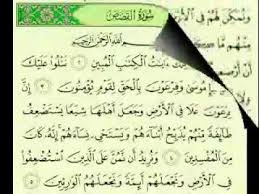 سُورَةُ القَصَصِ
بِسْمِ اللَّهِ الرَّحْمَنِ الرَّحِيمِ
الْكِتَبِ الْمُبِينِ ٢ نَتْلُوا عَلَيْكَ
مُوسَى وَفِرْعَوْنَ بِالْحَقِّ لِقَوْمٍ يُؤْمِنُونَ ٣ إِنَّ
فِرْعَوْنَ عَلَا فِي الْأَرْضِ وَجَعَلَ أَهْلَهَا شِيَعًا يَسْتَضْعِفُ
طَائِفَةً مِنْهُمْ يُذَبِّحُ أَبْنَاءَهُمْ وَيَسْتَحْيِ نِسَاءَهُمْ إِنَّهُ كَانَ
مِنَ الْمُفْسِدِينَ ٤ وَنُرِيدُ أَنْ نَمُنَّ عَلَى الَّذِينَ اسْتُضْعِفُوا
فِي الْأَرْضِ وَنَجْعَلَهُمْ أَئِمَّةً وَنَجْعَلَهُمُ الْوَارِثِينَ ٥
وَنُمَكِّنَ لَهُمْ فِي
مِنْهُم مَّا